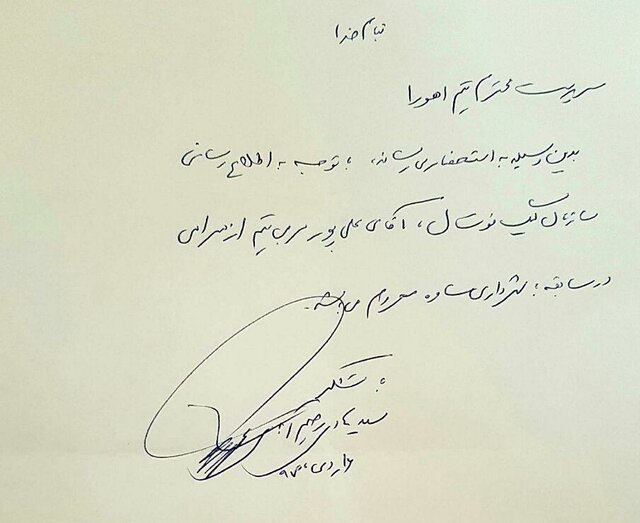 بنام خدا
سرپرست محترم تیم اهورا
بدین وسیله به استحضار می رساند، با توجه به اطلاع رسانی
سازمان لیگ فوتسال، آقای علی پور مربی تیم از همراهی
در مسابقه با شهرداری ساوه محروم می باشد.
با تشکر
سید هادی